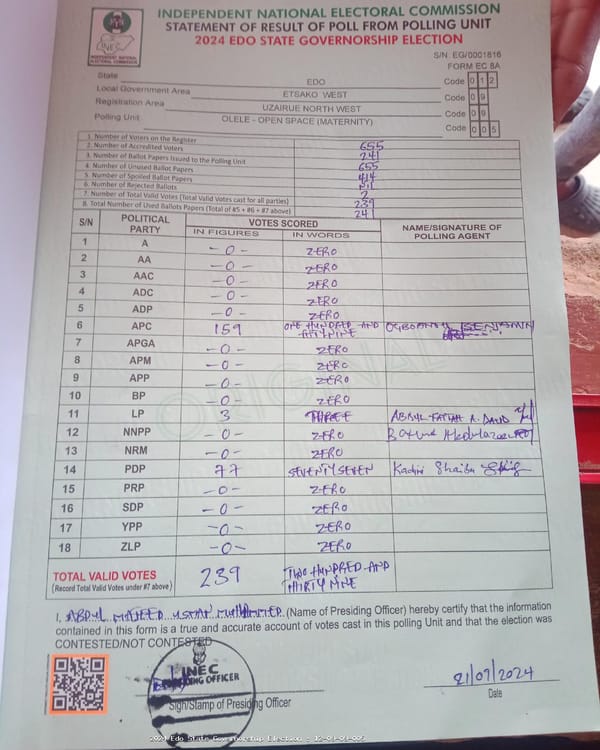 INDEPENDENT NATIONAL ELECTORAL COMMISSION
STATEMENT OF RESULT OF POLL FROM POLLING UNIT
2024 EDO STATE GOVERNORSHIP ELECTION
INEC
INDEPENDENT NATIONAL ELECTORAL COMMISSION
S/N: EG/0001816
FORM EC 8A
State EDO Code 0 1 2
Local Government Area ETSAKO WEST Code 0 9
Registration Area UZAIRUE NORTH WEST Code 0 9
Polling Unit OLELE - OPEN SPACE (MATERNITY) Code 0 0 5
1. Number of Voters on the Register 655
2. Number of Accredited Voters 241
3. Number of Ballot Papers Issued to the Polling Unit 655
4. Number of Unused Ballot Papers 414
5. Number of Spoiled Ballot Papers Nil
6. Number of Rejected Ballots 2
7. Number of Total Valid Votes (Total Valid Votes cast for all parties) 239
8. Total Number of Used Ballots Papers (Total of #5 + #6 + #7 above) 241
S/N POLITICAL PARTY VOTES SCORED NAME/SIGNATURE OF POLLING AGENT
IN FIGURES IN WORDS
1 A -0- ZERO
2 AA -0- ZERO
3 AAC -0- ZERO
4 ADC -0- ZERO
5 ADP -0- ZERO
6 APC 159 ONE HUNDRED AND
7 APGA -0- ZERO
8 APM -0- ZERO
9 APP -0- ZERO
10 BP -0- ZERO
11 LP 3 THREE ABDUL FATTAH A. DAUD
12 NNPP -0- ZERO
13 NRM -0- ZERO
14 PDP 77 SEVENTY SEVEN Kadiri Shaibu
15 PRP -0- ZERO
16 SDP -0- ZERO
17 YPP -0- ZERO
18 ZLP -0- ZERO
TOTAL VALID VOTES 239 TWO HUNDRED AND
(Record Total Valid Votes under #7 above) THIRTY NINE
I, ABDUL MAJEED USMAN MUHAMMED (Name of Presiding Officer) hereby certify that the information
contained in this form is a true and accurate account of votes cast in this polling Unit and that the election was
CONTESTED/NOT CONTESTED
INEC
PRESIDING OFFICER
Sign/Stamp of Presiding Officer
21/09/2024
Date
2024 Edo State Governorship Election - 12-09-09-005
ORIGINAL